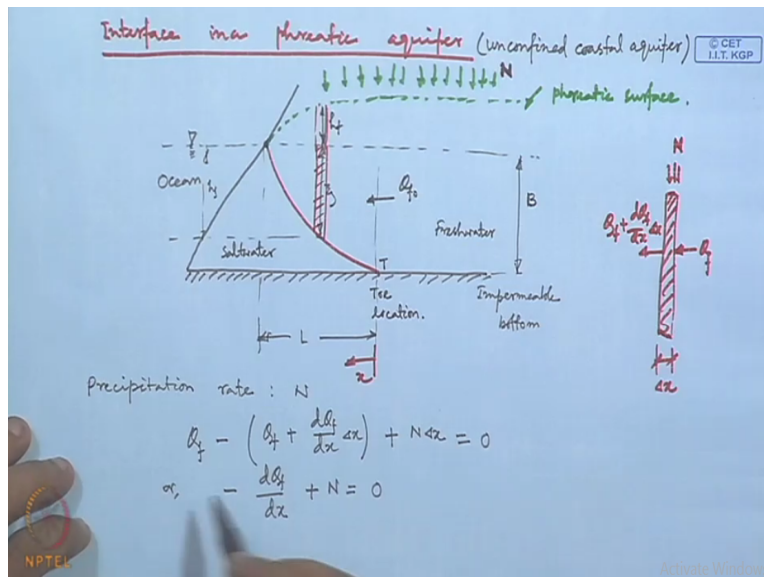 Interface in a phreatic aquifer (unconfined coastal aquifer)
© CET
I.I.T. KGP
N
phreatic surface.
h_f
Ocean
ξ
ξ
Q_f0
B
Freshwater
Saltwater
T
Toe location.
Impermeable bottom
L
x
N
Q_f + dQ_f/dx Δx
Q_f
Δx
Precipitation rate : N
Q_f − (Q_f + dQ_f/dx Δx) + NΔx = 0
or, − dQ_f/dx + N = 0
NPTEL
Activate Window